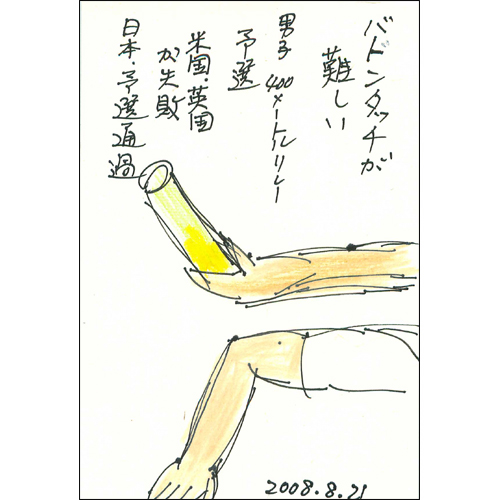 バトンタッチが
難しい
男子 400メートルリレー
予選
米国・英国
が失敗
日本・予選通過
2008.8.21